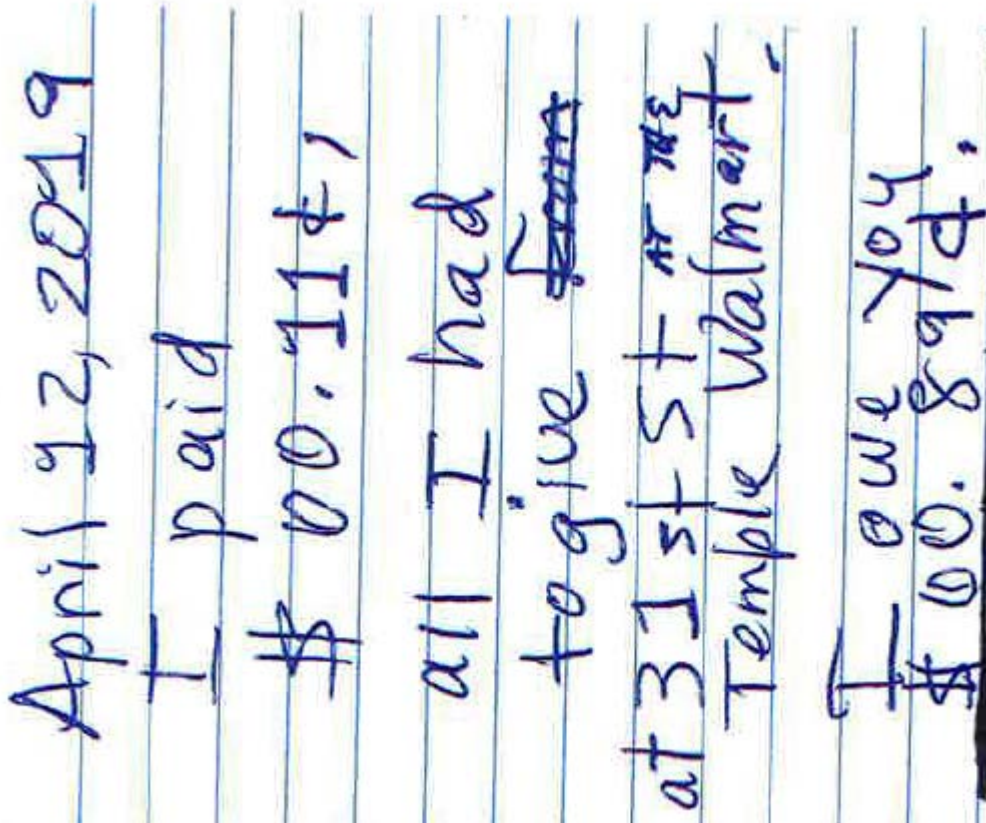 April 12, 2019
I paid
$ 00.11¢,
all I had
to give
at 31st St AT THE
Temple Walmart.
I owe you
$ 00.89¢.